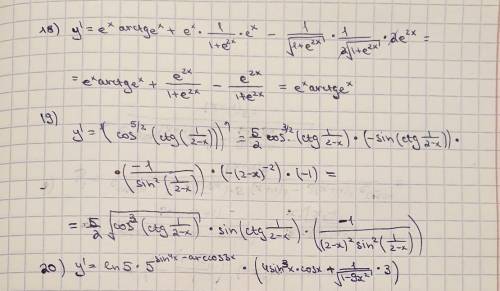 18) y' = eˣ arctg eˣ + eˣ · 1/(1+e²ˣ) · eˣ − 1/√(1+e²ˣ) · 1/(2√(1+e²ˣ)) · 2e²ˣ =
= eˣ arctg eˣ + e²ˣ/(1+e²ˣ) − e²ˣ/(1+e²ˣ) = eˣ arctg eˣ
19)
y' = (cos^(5/2) (ctg(1/(2-x))))' = 5/2 cos^(3/2) (ctg 1/(2-x)) · (−sin(ctg 1/(2-x))) ·
· (−1/(sin²(1/(2-x)))) · (−(2-x)⁻²) · (−1) =
= −5/2 √(cos³(ctg 1/(2-x))) · sin(ctg 1/(2-x)) · (−1/((2-x)² sin²(1/(2-x))))
20) y' = ln 5 · 5^(sin⁴x − arccos3x) · (4sin³x · cosx + 1/√(1−9x²) · 3)